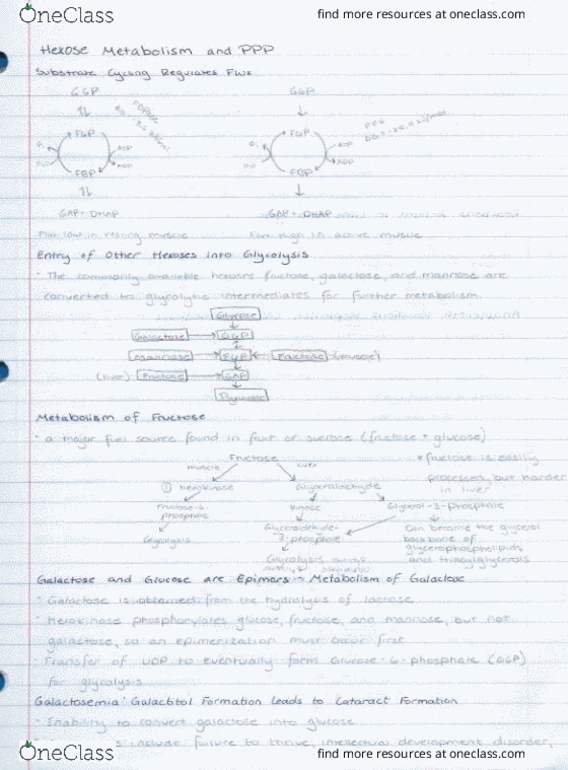 OneClass
find more resources at oneclass.com
Hexose Metabolism and PPP
Substrate Cycling Regulates Flux
G6P
G6P
F6P
ATP
ADP
FBP
F6P
ATP
ADP
FBP
GAP + DHAP
GAP + DHAP
Flux low in resting muscle
Flux high in active muscle
Entry of Other Hexoses into Glycolysis
· The commonly available hexoses fructose, galactose, and mannose are
converted to glycolytic intermediates for further metabolism.
Glucose
Galactose
G6P
Mannose
F6P
Fructose
(muscle)
(liver)
Fructose
GAP
Pyruvate
Metabolism of Fructose
· a major fuel source found in fruit or sucrose (fructose + glucose)
Fructose
* fructose is easily
muscle
liver
processed, but harder
in liver
① hexokinase
Glyceraldehyde
Fructose-6-
phosphate
kinase
Glycerol-3-phosphate
Glycolysis
Glyceraldehyde-
3-phosphate
can become the glycerol
backbone of
glycerophospholipids
and triacylglycerols
Glycolysis
Galactose and Glucose are Epimers → Metabolism of Galactose
· Galactose is obtained from the hydrolysis of lactose
· Hexokinase phosphorylates glucose, fructose, and mannose, but not
galactose, so an epimerization must occur first
· Transfer of UDP to eventually form Glucose-6-phosphate (G6P)
for glycolysis
Galactosemia: Galactitol Formation Leads to Cataract Formation
· Inability to convert galactose into glucose
include failure to thrive, intellectual development disorder,
OneClass
find more resources at oneclass.com